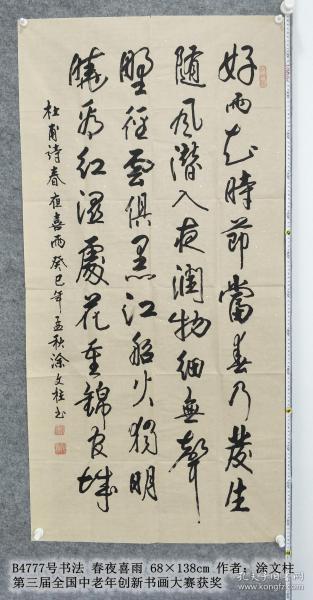 好雨知時節當春乃發生
随風潛入夜潤物細無聲
野徑雲俱黑江船火獨明
曉看紅濕處花重錦官城
杜甫诗春夜喜雨癸巳年孟秋涂文柱书
B4777号书法 春夜喜雨 68×138cm 作者：涂文柱
第三届全国中老年创新书画大赛获奖